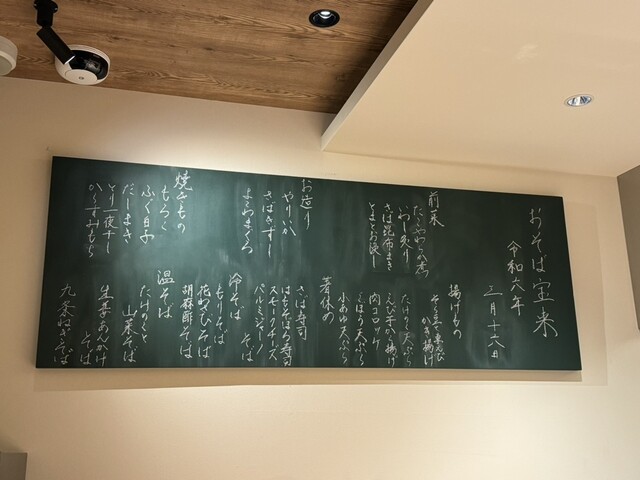 おそば宝来
令和六年
三月十六日
前菜
いわし炙り
さば昆布まき
とまとお浸し
お造り
やりいか
さばきずし
よこわまぐろ
焼きもの
もろこ
ふぐ白子
だしまき
とり一夜干し
からすみもち
揚げもの
かき揚げ
たけのこ天ぷら
えび芋から揚げ
肉コロッケ
ごぼう天ぷら
小あゆ天ぷら
箸休め
さば寿司
はもそぼろ寿司
スモークチーズ
パルミジャーノ
冷そば
もりそば
花わさびそば
胡麻酢そば
温そば
たけのこと
山菜そば
生姜あんかけ
そば
九条ねぎそば